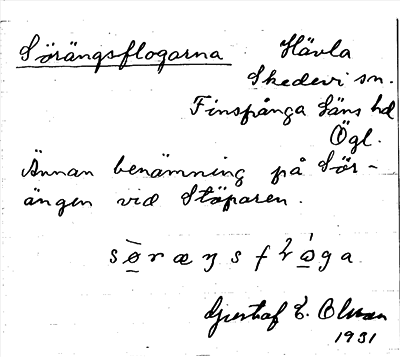 Sörängsflogarna Hävla
Skedevi sn.
Finspånga Läns hd
Ögl.
Ännan benämning på Sör-
ängen vid Stöparen.
Gustaf E. Olsson
1931